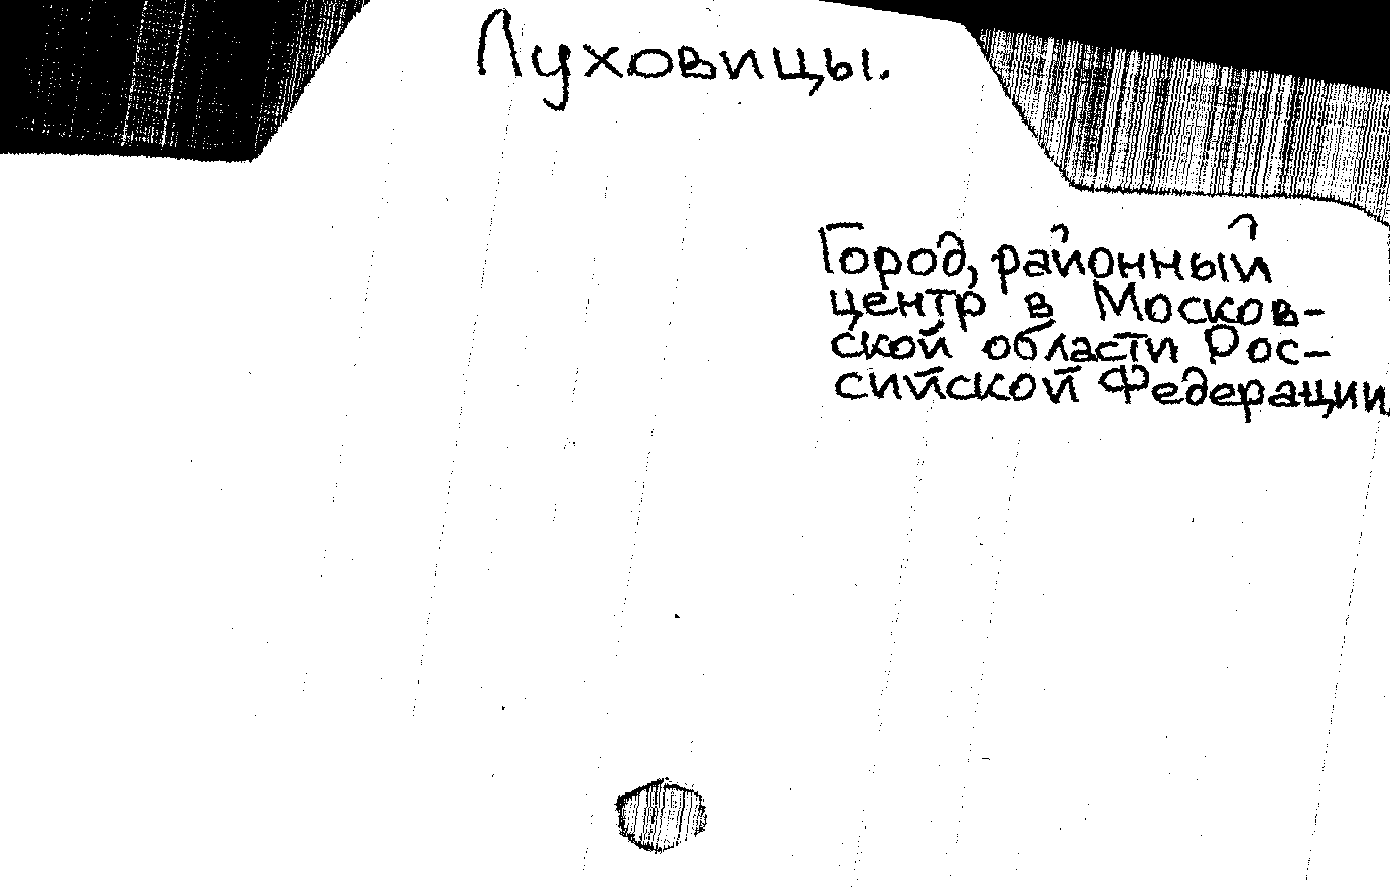 Луховицы.
Город, районный
центр в Москов-
ской области Рос-
сийской Федерации